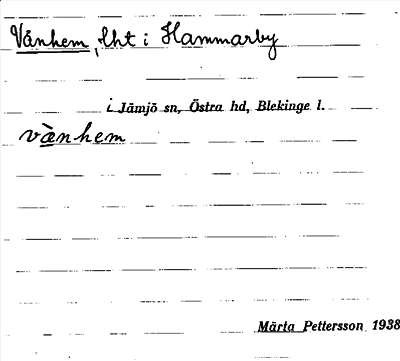 Vånhem, lht i Hammarby
i Jämjö sn, Östra hd, Blekinge l.
vànhem
Märta Pettersson 1938